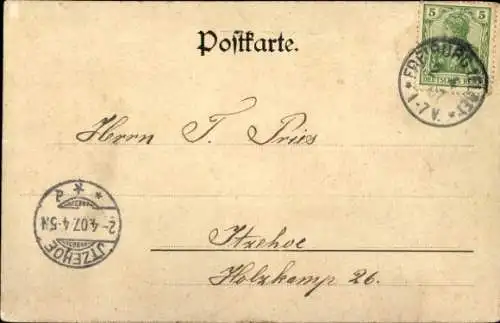 Postkarte.
5 5
DEUTSCHES REICH
FREIBURG
1-7 V.
Herrn T. Pries
Itzehoe
Holzkamp 26.
ITZEHOE
2-4.07.4-5N